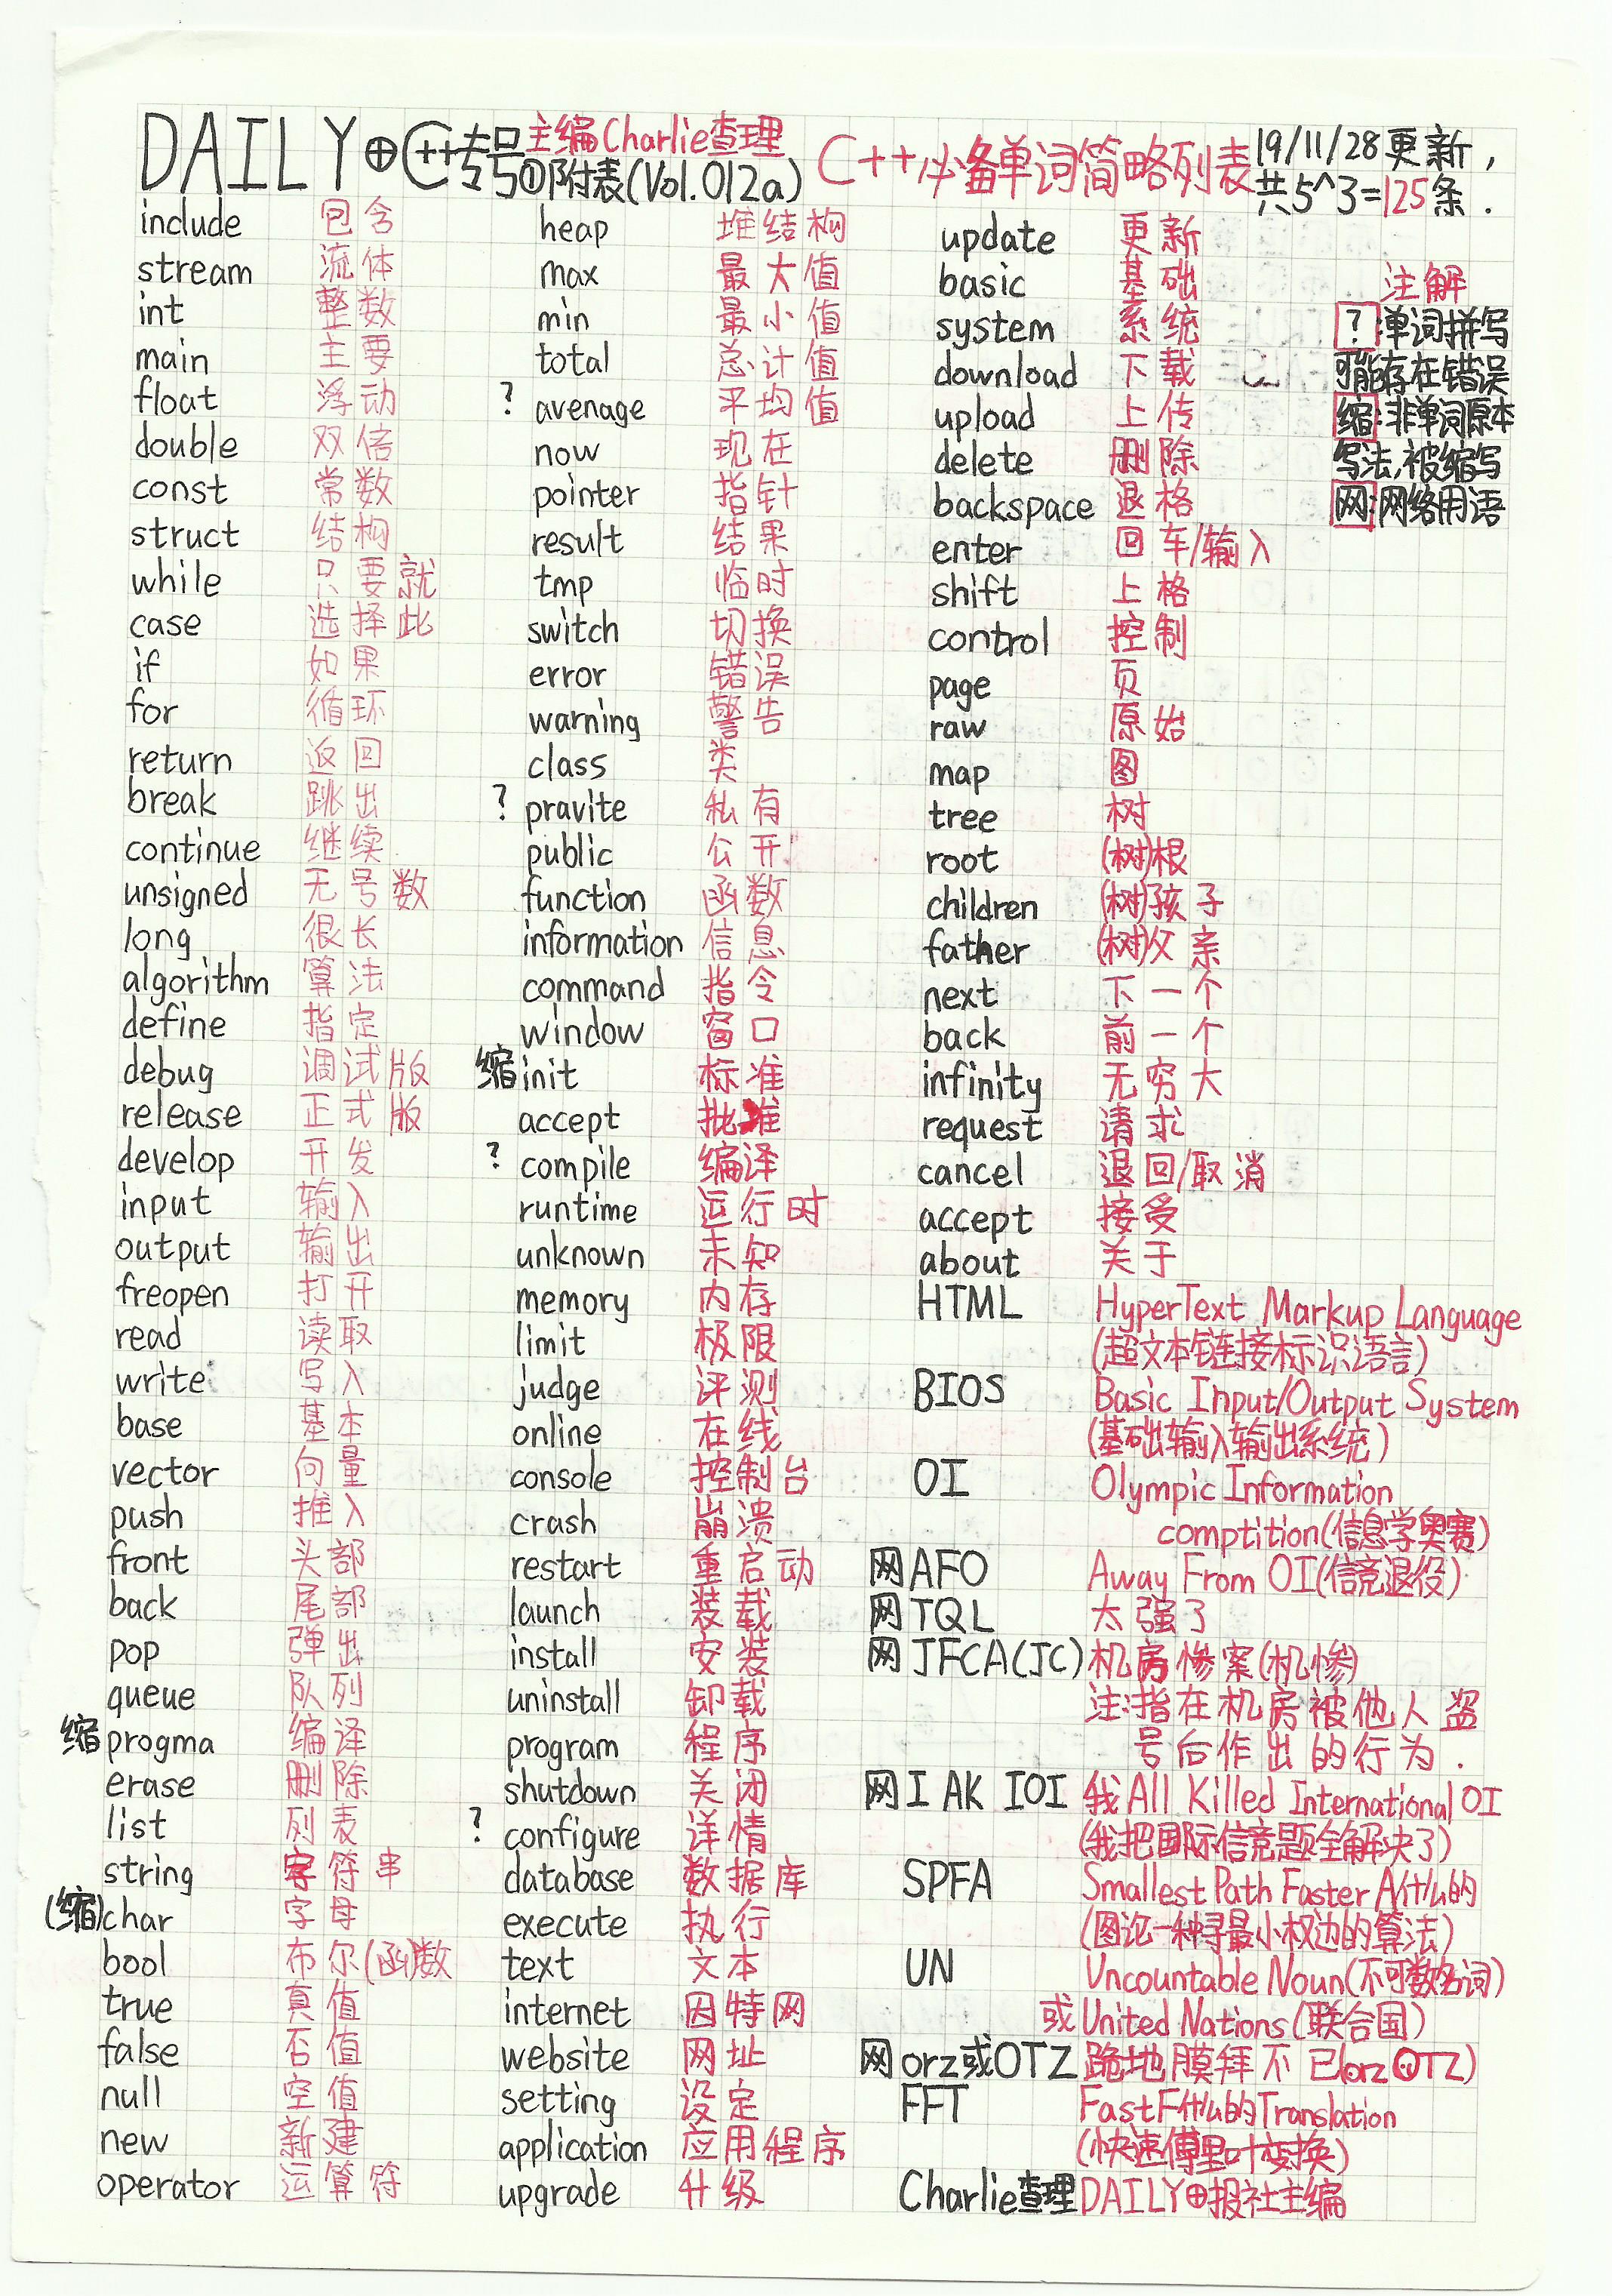 DAILY⊕C++专号 主编Charlie查理
①附表(Vol.012a)
C++必备单词简略列表
19/11/28更新,
共5^3=125条.
include 包含
stream 流体
int 整数
main 主要
float 浮动
double 双倍
const 常数
struct 结构
while 只要就
case 选择此
if 如果
for 循环
return 返回
break 跳出
continue 继续
unsigned 无号数
long 很长
algorithm 算法
define 指定
debug 调试版
release 正式版
develop 开发
input 输入
output 输出
freopen 打开
read 读取
write 写入
base 基本
vector 向量
push 推入
front 头部
back 尾部
pop 弹出
queue 队列
缩progma 编译
erase 删除
list 列表
string 字符串
(缩)char 字母
bool 布尔(函)数
true 真值
false 否值
null 空值
new 新建
operator 运算符
heap 堆结构
max 最大值
min 最小值
total 总计值
? avenage 平均值
now 现在
pointer 指针
result 结果
tmp 临时
switch 切换
error 错误
warning 警告
class 类
? pravite 私有
public 公开
function 函数
information 信息
command 指令
window 窗口
缩init 标准
accept 批准
? compile 编译
runtime 运行时
unknown 未知
memory 内存
limit 极限
judge 评测
online 在线
console 控制台
crash 崩溃
restart 重启动
launch 装载
install 安装
uninstall 卸载
program 程序
shutdown 关闭
? configure 详情
database 数据库
execute 执行
text 文本
internet 因特网
website 网址
setting 设定
application 应用程序
upgrade 升级
update 更新
basic 基础
system 系统
download 下载
upload 上传
delete 删除
backspace 退格
enter 回车/输入
shift 上格
control 控制
page 页
raw 原始
map 图
tree 树
root (树)根
children (树)孩子
father (树)父亲
next 下一个
back 前一个
infinity 无穷大
request 请求
cancel 退回/取消
accept 接受
about 关于
HTML HyperText Markup Language
(超文本链接标识语言)
BIOS Basic Input/Output System
(基础输入输出系统)
OI Olympic Information
comptition(信息学奥赛)
网AFO Away From OI(信竞退役)
网TQL 太强了
网JFCA(JC) 机房惨案(机惨)
注:指在机房被他人盗
号后作出的行为.
网I AK IOI 我All Killed International OI
(我把国际信竞题全解决了)
SPFA Smallest Path Faster A什么的
(图论一种寻最小权边的算法)
UN Uncountable Noun(不可数名词)
或United Nations(联合国)
网orz或OTZ 跪地膜拜不已(orz OTZ)
FFT FastF什么的Translation
(快速傅里叶变换)
Charlie查理 DAILY⊕报社主编
注解
?:单词拼写
可能存在错误
缩:非单词原本
写法,被缩写
网:网络用语